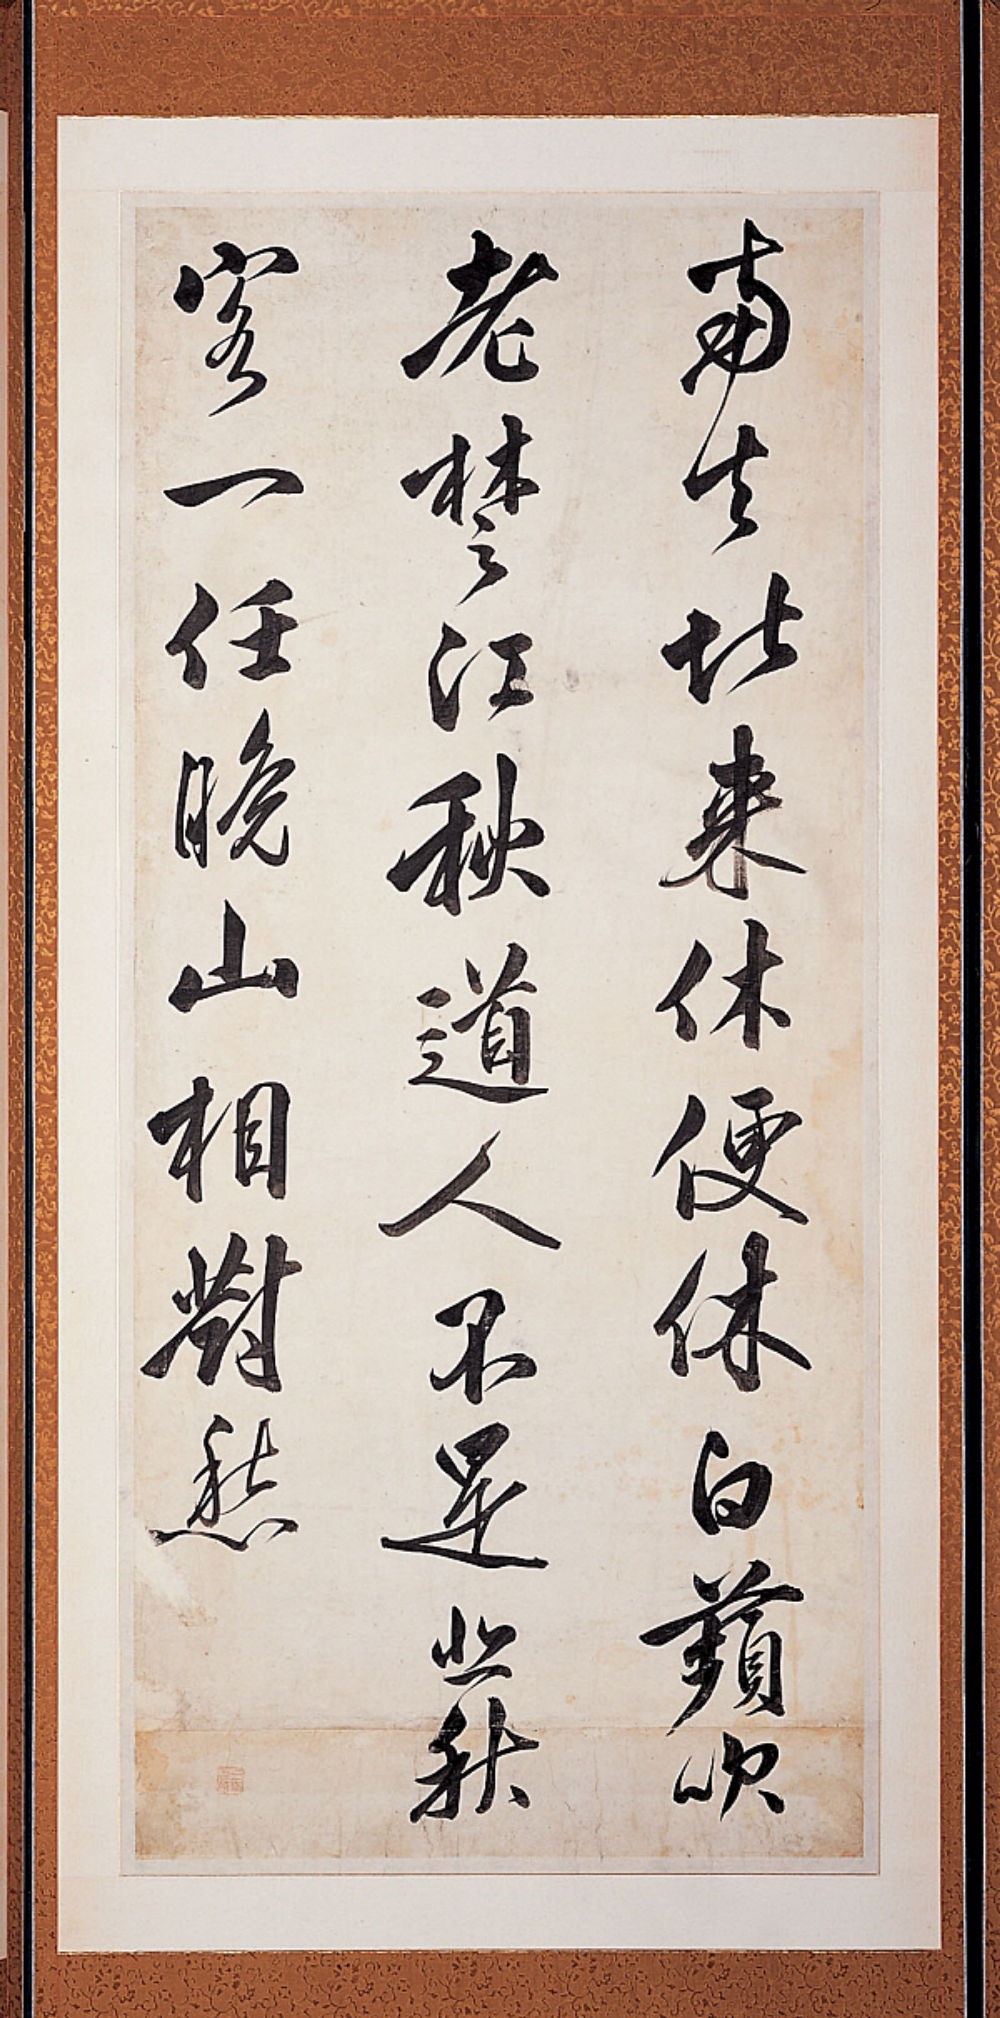 南去北來休便休白蘋吹
老楚江秋道人不是悲秋
客一任晚山相對愁